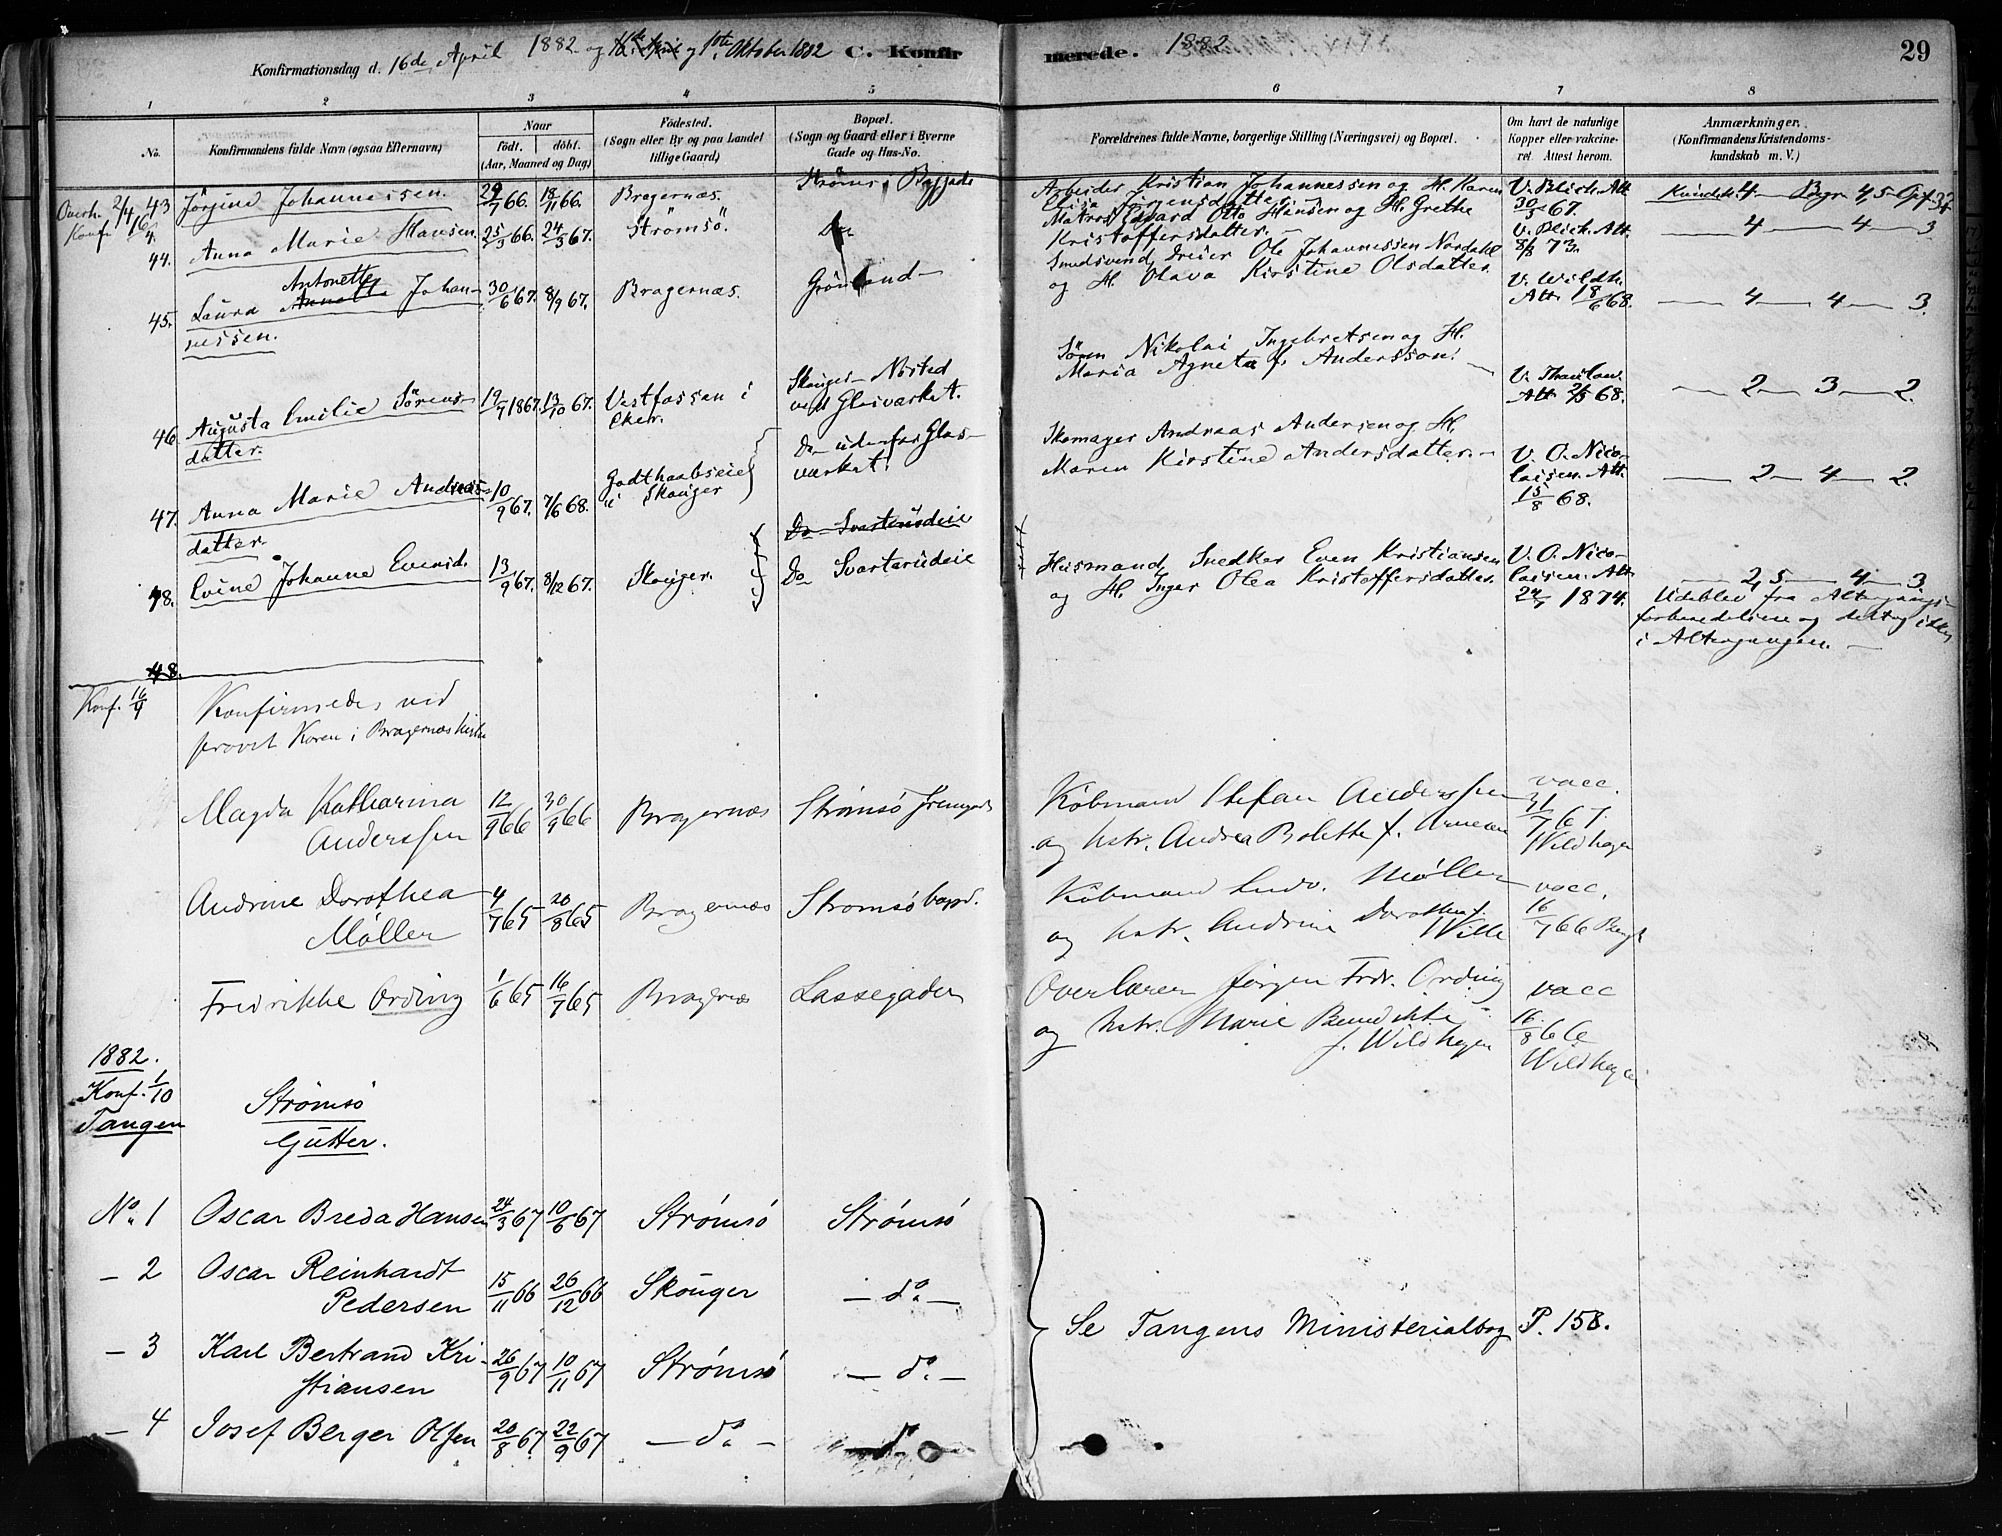 Konfirmationsdag d. 16de April 1882 og 1ste Oktober 1882 C. Konfirmerede. 1882 29
1 2 3 4 5 6 7 8
No. Konfirmandens fulde Navn (ogsaa Efternavn) Naar født. døbt. (Aar, Maaned og Dag)
Fødested. (Sogn eller By og paa Landet tillige Gaard)
Bopæl. (Sogn og Gaard eller i Byerne Gade og Hus-No.
Forældrenes fulde Navne, borgerlige Stilling (Næringsvei) og Bopæl.
Om havt de naturlige Kopper eller vakcineret Attest herom.
Anmærkninger. (Konfirmandens Kristendomskundskab m. V.)
43 Jørgine Johannessen. 29/7 66. 18/11 66. Bragernæs. Strømsø
Arbeider Kristian Johannessen og H. Karen
Elisa Jörgensdatter
V. Blich. Att.
30/3 67.
Kundsk. 4 4,5
44. Anna Marie Hansen. 25/3 66. 24/3 67. Strömsö. Do
Matros Edvard Otto Hansen og H. Grethe
Kristoffersdatter.
V. Blich. Att.
8/8 73.
4 — 4 — 3
45. Laura Antonette Johannessen. 30/6 67. 8/9 67. Bragernæs. Grönland
Smedsvend, Dreier Ole Johannessen Nordahl
og H. Olava Kirstine Olsdatter.
Att. 18/6 68.
— 4 — 4 — 3.
46. Augusta Emilie Sörensdatter. 19/7 1867. 13/10 67. Vestfossen i Eker. Skouger — Nösted
ved Glasværket.
Sören Nikolai Ingebretsen og H.
Maria Agneta f. Andersson.
V. Thaulow
Att 68.
— 2 — 3 — 2.
47. Anna Marie Andreasdatter. 10/9 67. 7/6 68. Godthaabseie i Skouger Do udenfor Glasværket.
Skomager Andreas Andersen og H.
Maren Kirstine Andersdatter.
V. O. Nicolaisen. Att.
15/8 68.
— 2 — 4 — 2.
48. Evine Johanne Evensd. 13/9 67. 8/12 67. Skouger. Do Svarterudeie
Do Svarterudeie
Husmand, Snedker Even Kristiansen
og H. Inger Olea Kristoffersdatter.
V. O. Nicolaisen. Att.
24/7 1874.
— 2,5 — 4 — 3
Udeblev fra Altergangs-
forberedelsen og deltog ikke
i Altergangen.
48.
Konf. 16/4 Konfirmedes ved
provst Koren i Bragernæs kirke
Magda Katharina
Anderssen 12/9 66 30/9 66 Bragernæs Strømsø
Købmand Stefan Anderssen
og hstr. Andrea Bolette f. Arnesen
vacc.
31/7 67.
Wildhagen
Andrine Dorothea
Møller 4/7 65 20/8 65 Bragernæs Strømsø
Købmand Ludv. Møller
og hstr. Andrine Dorothea f. Wille
vacc.
16/7 66
Fredrikke Ording 1/6 65 16/7 65 Bragernæs Lassegaden
Overlærer Jørgen Fredr. Ording
og hstr. Marie Benedikte
f. Wildhagen
vacc
16/8 66
Wildhagen
1882.
Konf. 1/10
Tangen
Strømsø
Gutter.
No. 1 Oscar Breda Hansen 24/3 67 10/6 67 Strømsø Strømsø
— 2 Oscar Reinhardt
Pedersen 15/11 66 26/12 66 Skouger — do. —
Se Tangens Ministerialbog P. 158.
— 3 Karl Bertrand Kri-
stiansen 26/9 67 10/11 67 Strømsø — do. —
— 4 Josef Berger Olsen 20/8 67 22/9 67 — do. — — do.